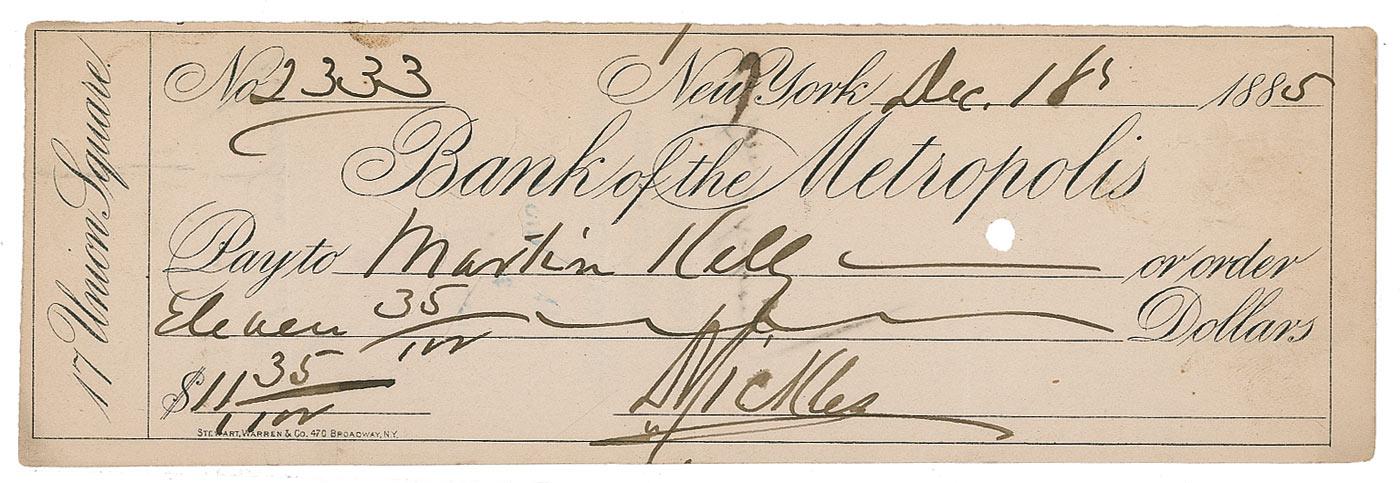 17 Union Square.
No 2333 New York Dec. 18 1885
Bank of the Metropolis
Pay to Martin Kelly or order
Eleven 35/100 Dollars
$11 35/100
STEWART, WARREN & CO. 470 BROADWAY, N.Y.